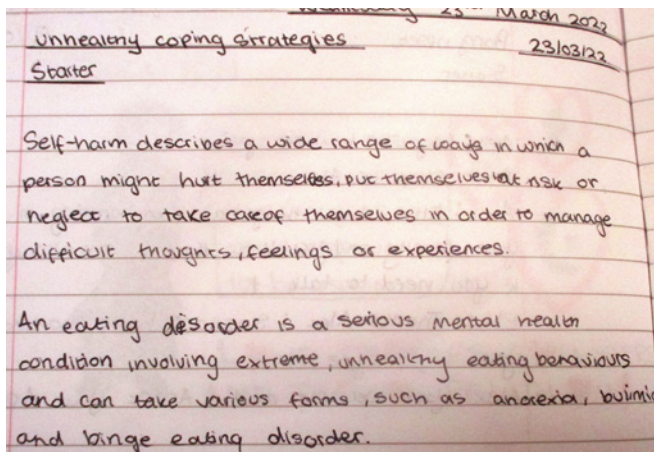 Wednesday 23rd March 2022
Unhealthy coping strategies
23/03/22
Starter
Self-harm describes a wide range of ways in which a
person might hurt themselves, put themselves at risk or
neglect to take care of themselves in order to manage
difficult thoughts, feelings or experiences.
An eating disorder is a serious mental health
condition involving extreme, unhealthy eating behaviours
and can take various forms, such as anorexia, bulimia
and binge eating disorder.